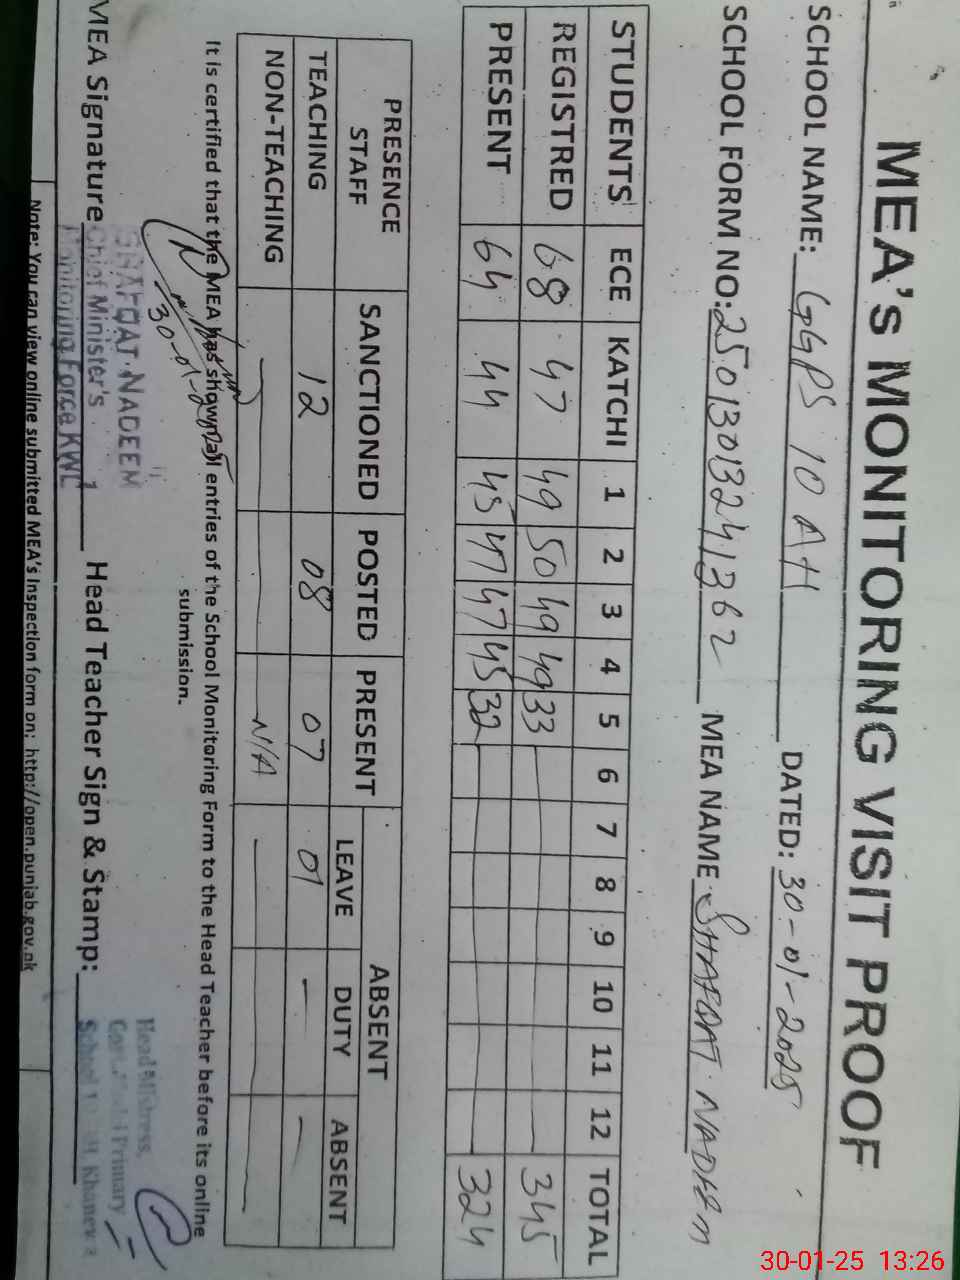 MEA's MONITORING VISIT PROOF
SCHOOL NAME: GGPS 10 AH DATED: 30-01-2025
SCHOOL FORM NO: 25013013241362 MEA NAME SHAFQAT NADEEM
STUDENTS ECE KATCHI 1 2 3 4 5 6 7 8 9 10 11 12 TOTAL
REGISTRED 68 47 49 50 49 49 33 345
PRESENT 64 44 45 47 47 45 32 324
PRESENCE STAFF SANCTIONED POSTED PRESENT ABSENT
LEAVE DUTY ABSENT
TEACHING 12 08 07 01 — —
NON-TEACHING — — N/A — — —
It is certified that the MEA has shown all entries of the School Monitoring Form to the Head Teacher before its online
submission.
30-01-25
SHAFQAT NADEEM
Chief Minister's
Monitoring Force KWL
MEA Signature Head Teacher Sign & Stamp:
Head Mistress,
Primary
School
Note: You can view online submitted MEA's Inspection form on; http://open.punjab.gov.pk
30-01-25 13:26